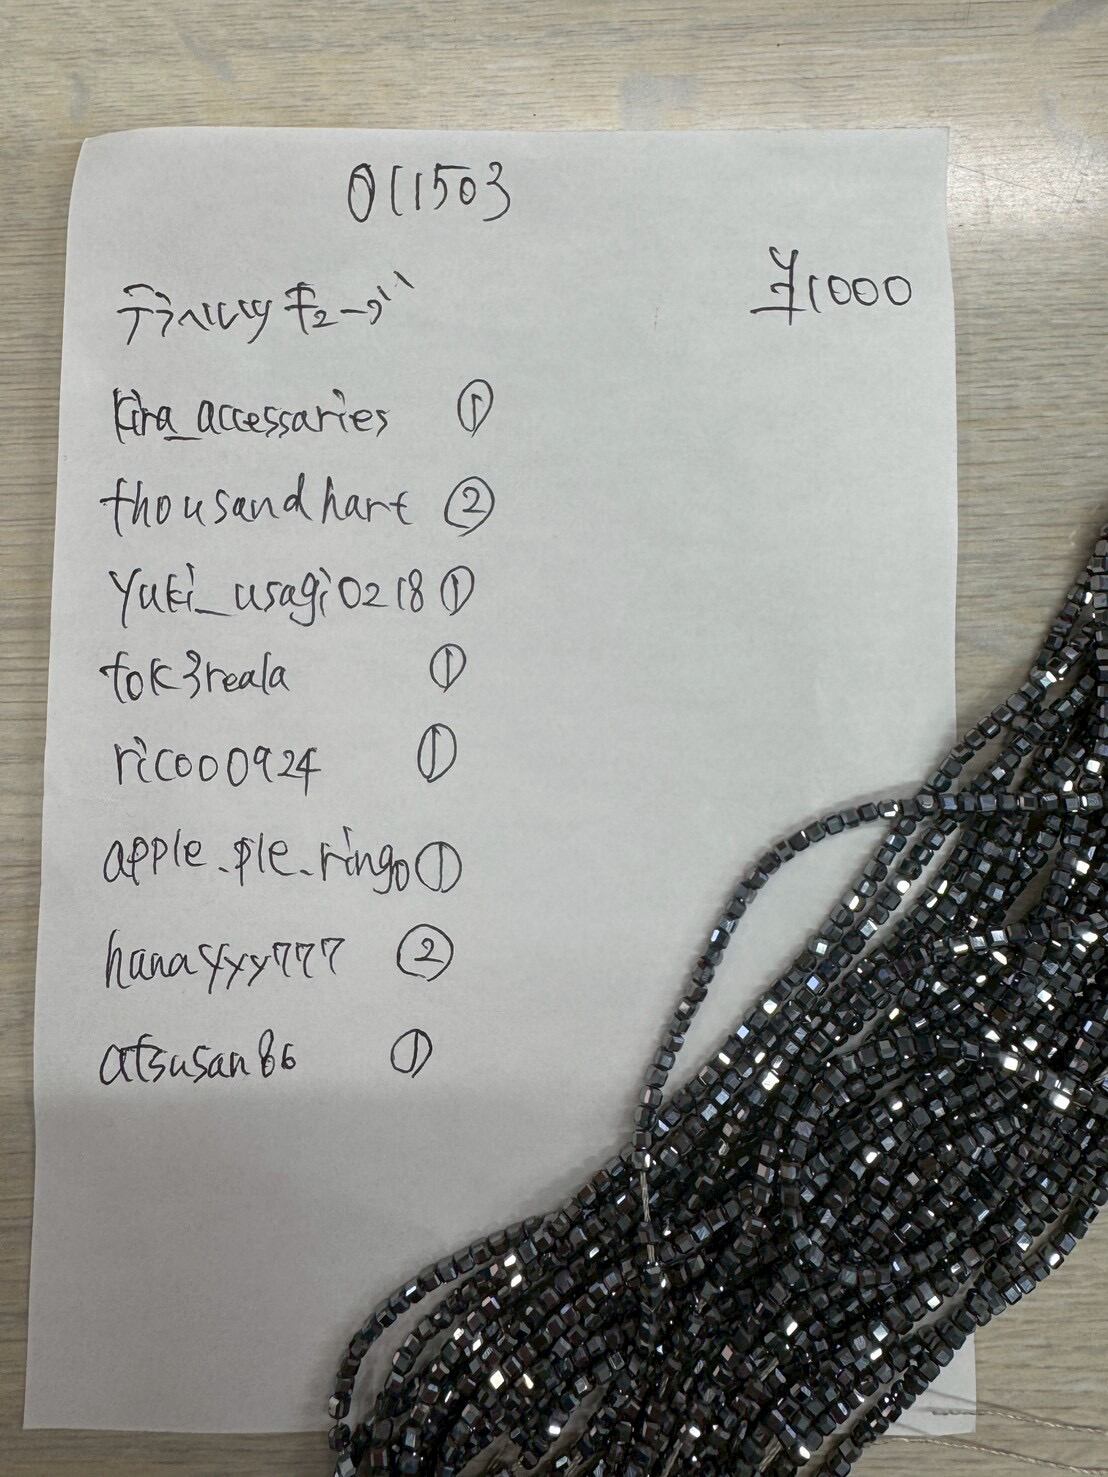 011503
テラヘルツキューブ ¥1000
kira_accessaries ①
thousandhart ②
yuki_usagi0218 ①
tok3reala ①
ricoo0924 ①
apple.ple.ringo ①
hanayyy777 ②
atsusan86 ①